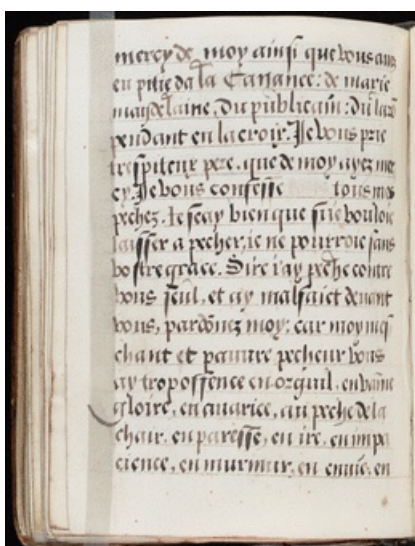 mercy de moy ainsi que vous auez
eu pitie de la Cananee: de marie
magdelaine, Du publicain: Du larō
pendant en la croix. Je vous prie
trespiteux pere, que de moy ayez mer
cy. Je vous confesse tous mes
pechez. Je sçay bien que si ie vouloie
laisser a pecher, ie ne pourroie sans
vostre grace. Sire i'ay peche contre
vous seul, et ay malfaict deuant
vous, pardōnez moy: car moy mes
chant et pauure pecheur vous
ay trop offence en orgueil, en vaine
gloire, en auarice, au peche de la
chair, en paresse, en ire, en impa
cience, en murmur, en enuie, en